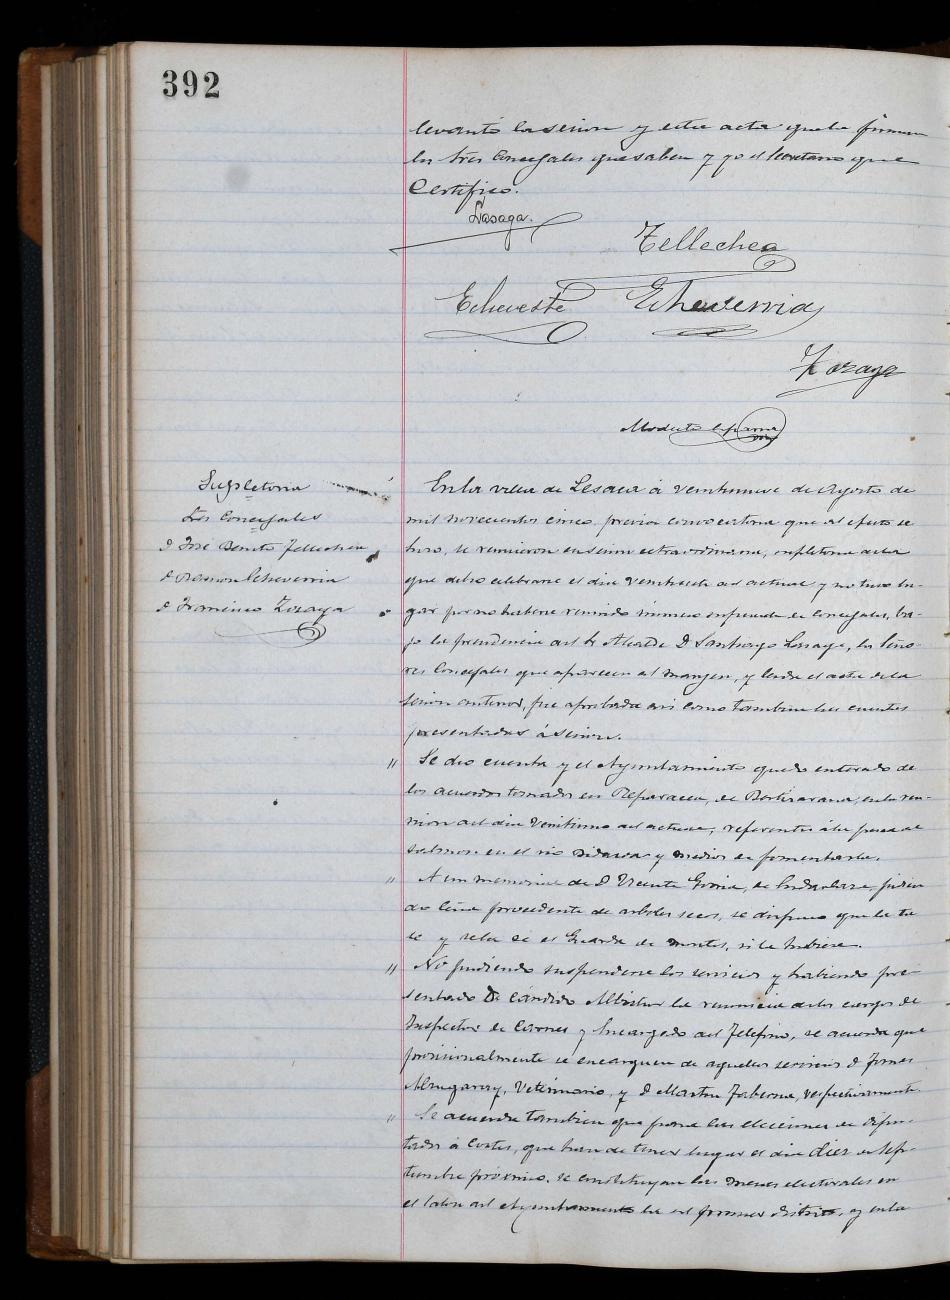 392
levantó la sesion y esta acta que la firman
los tres Concejales que saben y yo el Secretario que
Certifico.
Lasaga.
Tellechea
Echeveste
Echeverria
Zozaya
Modesto Esparza
Supletoria
Los Concejales
D José Benito Tellechea
D Ramon Echeverria
D Francisco Zozaya
En la villa de Lesaca á veintinueve de Agosto de
mil novecientos cinco, previa convocatoria que al efecto se
hizo, se reunieron en sesion extraordinaria, supletoria de la
que debio celebrarse el dia veintisiete del actual y no tuvo lu-
gar por no haberse reunido número suficiente de Concejales, ba-
jo la presidencia del Sr Alcalde D Santiago Lasaga, los Seño-
res Concejales que aparecen al margen, y leida el acta de la
sesion anterior, fue aprobada asi como tambien las cuentas
presentadas á sesion.
" Se dio cuenta y el Ayuntamiento quedo enterado de
los acuerdos tomados en Reparacea, de Bertizarana, en la reu-
nion del dia veintiuno del actual, referentes á la pesca de
salmon en el rio Bidasoa y medios de fomentarla.
" A un memorial de D Vicente Goñia, de Endarlaza, pidien
do leña procedente de arboles secos, se dispuso que la ta
se y señale el Guarda de montes, si la hubiere.
" No pudiendo suspenderse los servicios y habiendo pre-
sentado D. Cándido Albistur la renuncia de los cargos de
Inspector de Carnes y Encargado del Telefono, se acuerda que
provisionalmente se encarguen de aquellos servicios D Tomas
Almugaray, Veterinario, y D Martin Taberna, respectivamente
" Se acuerda tambien que para las elecciones de Dipu-
tados á Cortes, que han de tener lugar el dia diez de Sep-
tiembre próximo, se constituyan las mesas electorales en
el salon del Ayuntamiento la del primer distrito, y en la